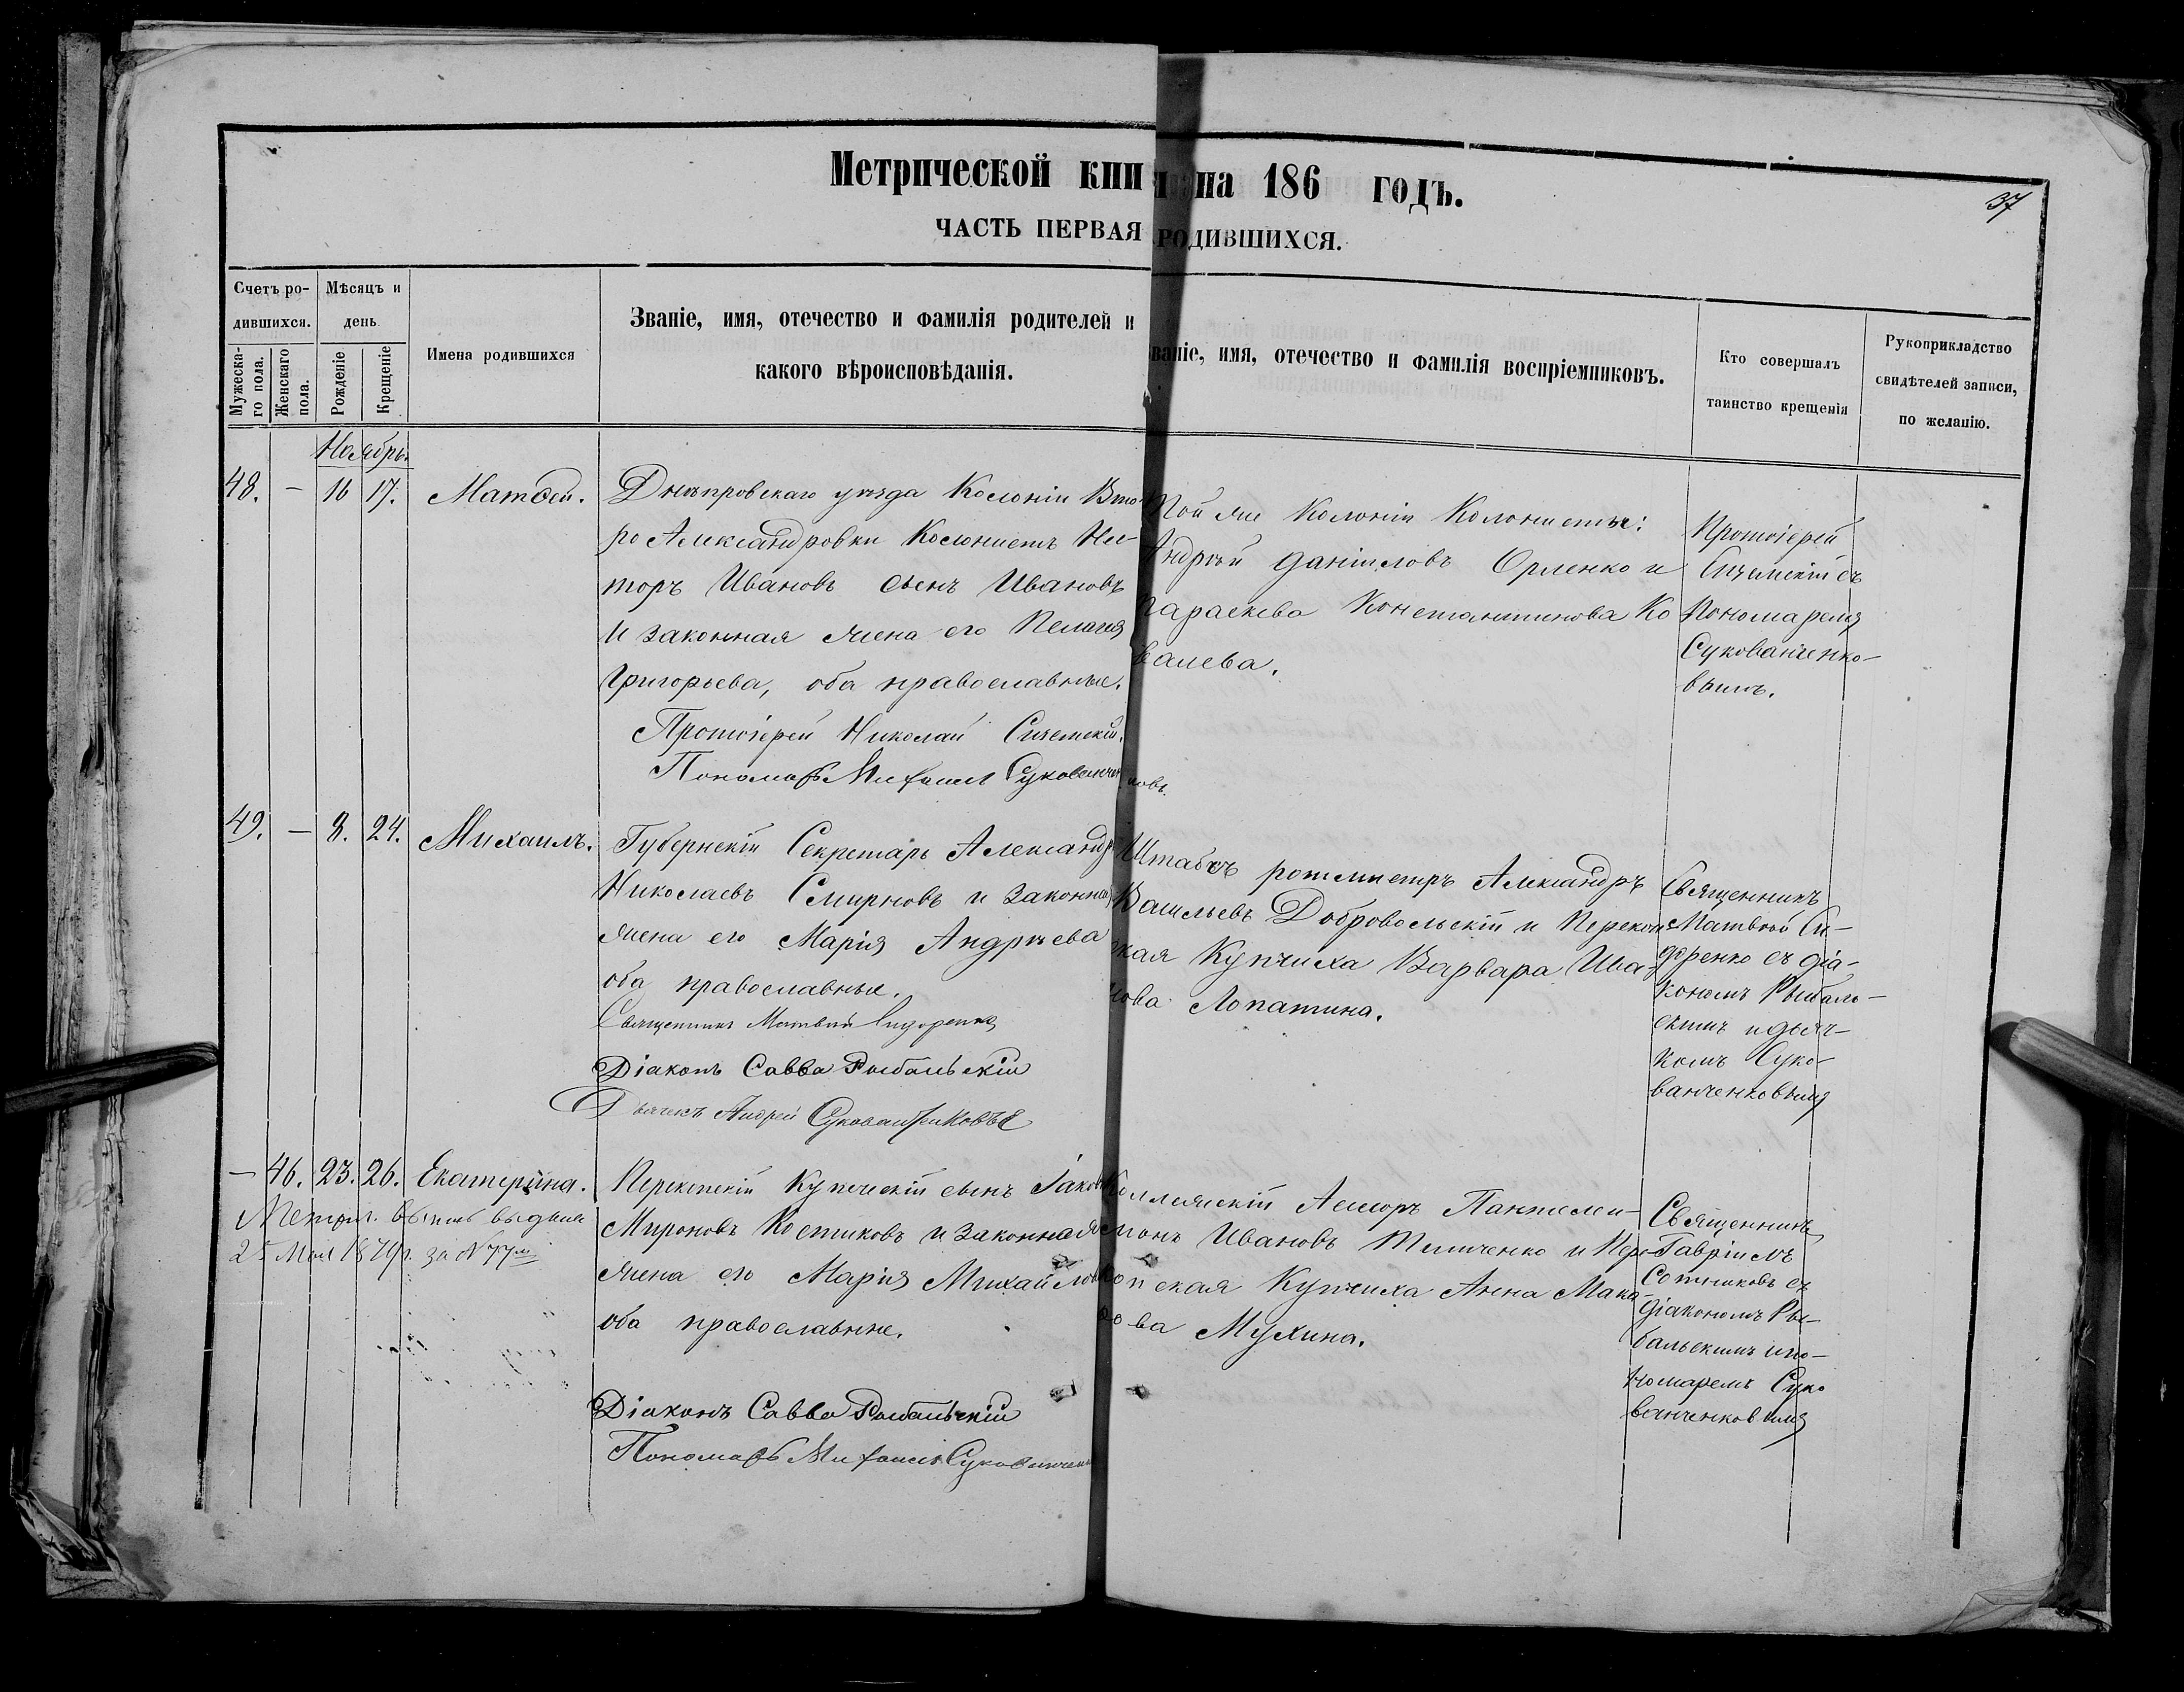 Метрической кни на 186 годъ.
37
ЧАСТЬ ПЕРВАЯ РОДИВШИХСЯ.
Счетъ ро-
дившихся.
Мужеска-
го пола.
Женскаго
пола.
Мѣсяцъ и
день
Рожденіе
Крещеніе
Имена родившихся
Званіе, имя, отечество и фамилія родителей и
какого вѣроисповѣданія.
ваніе, имя, отечество и фамилія воспріемниковъ.
Кто совершалъ
таинство крещенія
Рукоприкладство
свидѣтелей записи,
по желанію.
Ноябрь.
48. — 16 17. Матѳей.
Днѣпровскаго уѣзда Колоніи Вто
ро Александровки Колонистъ
Ивановъ сынъ Ивановъ
и законная жена его Пелагія
Григорьева, оба православные.
Протоіерей Николай
Пономарь Михаилъ Сукованчен
ковъ
Той же Колоніи Колонисты:
Андрей Даніиловъ Орленко и
Параскева Константинова Ко
валева.
Протоіерей
съ
Пономаремъ
Сукованченко-
вымъ.
49. — 8. 24. Михаилъ.
Губернскій Секретарь Александръ
Николаевъ Смирновъ и законная
жена его Марія Андреева
оба православные.
Священникъ Матвей Сидоренко
Діаконъ Савва Рыбальскій
Дьячекъ Андрей Сукованченковъ
Штабсъ ротмистръ Александръ
Васильевъ Добровольскій и Перекоп
ская Купчиха Варвара Ива-
нова Лопатина.
Священникъ
Матвей Си-
доренко съ діа-
кономъ Рыбаль-
скимъ и дьяч-
комъ Суко-
ванченковымъ
— 46. 23. 26. Екатерина.
выпись выдана
25 Мая за № 77
Перекопскій Купеческій сынъ Іаковъ
Мироновъ Костиковъ и законная
жена его Марія Михайлова
оба православные.
Діаконъ Савва Рыбальскій
Пономарь Михаилъ Сукованчен
Коллежскій Ассесоръ Пантелеи-
монъ Ивановъ Тимченко и Пере-
копская Купчиха Анна Мака-
рова Мухина.
Священникъ
Гавріилъ
Сотниковъ съ
діакономъ Ры-
бальскимъ и по-
номаремъ Суко
ванченковымъ